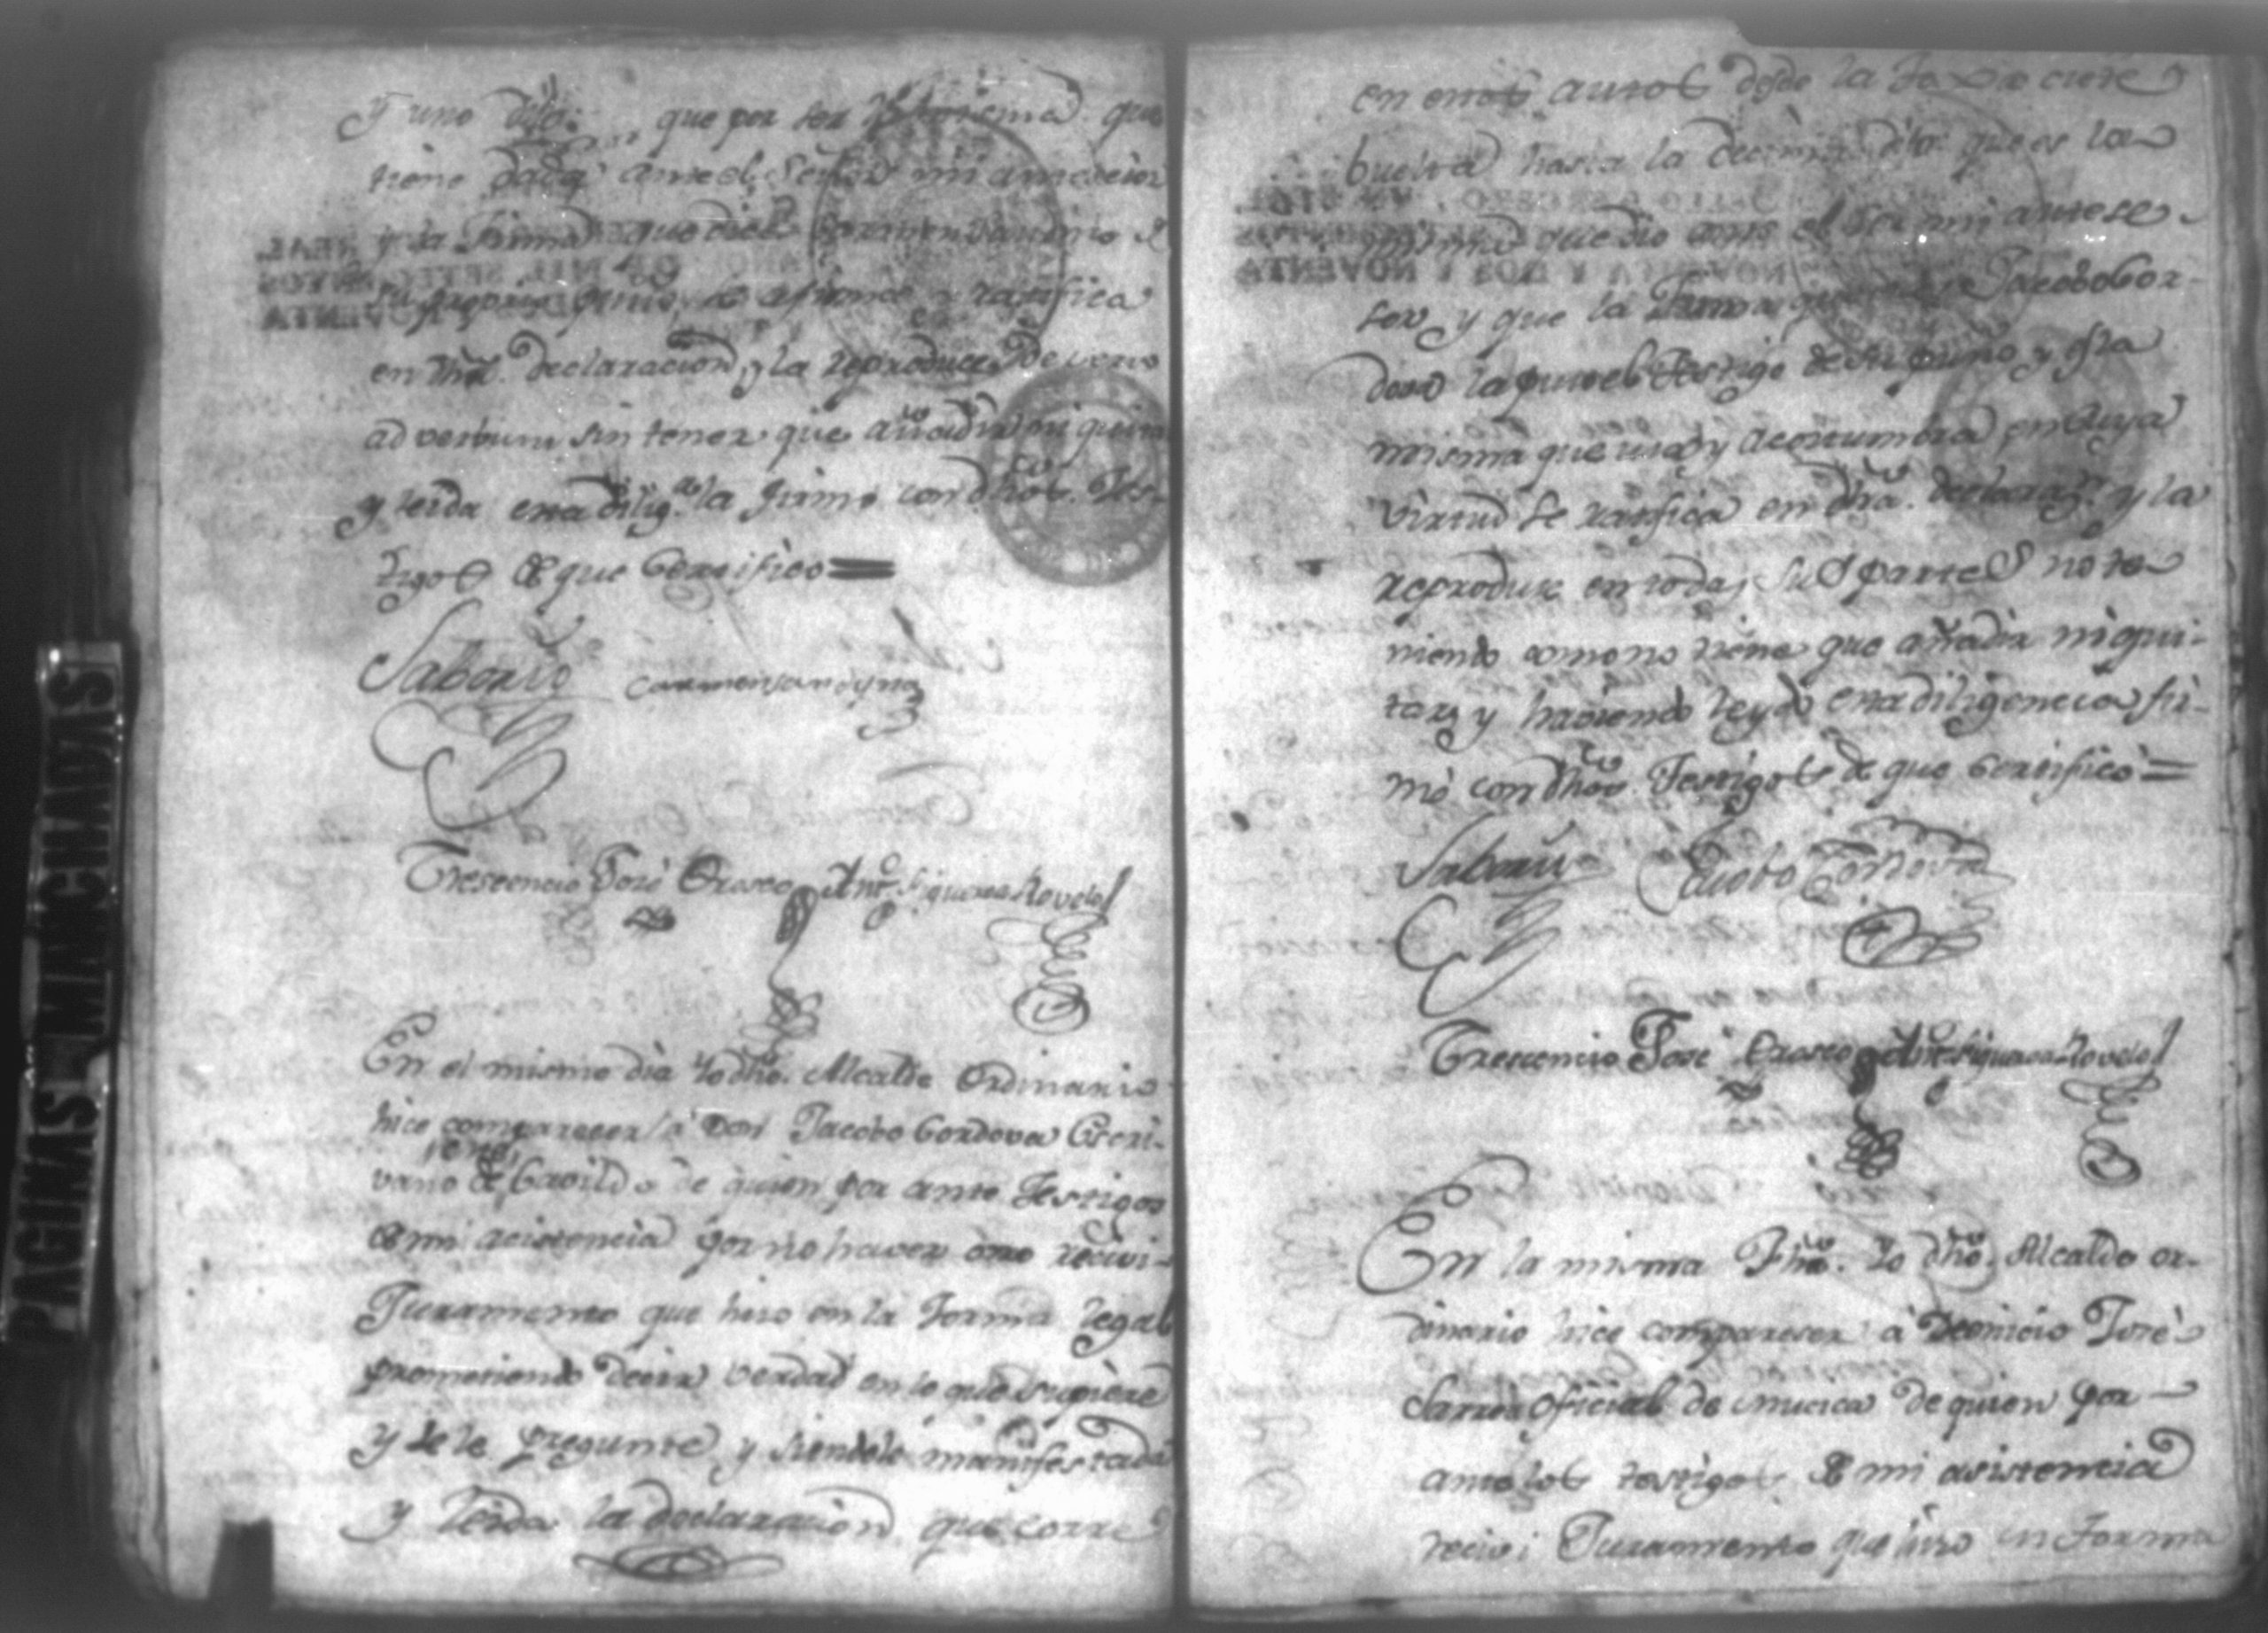 y uno dijo: que por ser la misma que
tiene dada ante el Señor mi antecesor
y la Firma que dice
su proprio genio, se afirma y ratifica
en dhã. declaracion, y la reproduce de vervo
ad verbum sin tener que añadir, ni quitar
y leida esta dilig.ª la firmo con dhos. Tes-
tigos de que Certifico =
Saborio Carmen
Crescencio José Orosco Ant.º Figueroa Rovelo
En el mismo dia Yo dho. Alcalde Ordinario
hice comparecer, a Don Jacobo Cordova Escri-
vano de Cavildo de quien por ante Testigos
de mi acistencia por no haver otro recivi
Juramento que hizo en la Forma legal
prometiendo decir verdad en lo que supiere
y se le pregunte, y siendole manifestada
y leida la declaracion que corre
en estos autos desde la foxa siete
buelta hasta la decima dijo: que es la
misma que dio ante el Sor. mi antese-
sor, y que la Firma que dice Jacobo Cor-
dova la puso el Testigo de su puño, y es la
misma que usa, y acostumbra en cuya
virtud se ratifica en dhã. declaraz.n y la
reproduce en todas sus partes no te-
niendo como no tiene que añadir ni qui-
tar, y haviendo leydo esta diligencia fir-
mó con dhos Testigos de que Certifico =
Saborio Jacobo Cordova
Crescencio José Orosco Ant.º Figueroa Rovelo
En la misma Fha. Yo dho. Alcalde or-
dinario hice comparecer a Deonicio José
Sarria Oficial de musica de quien por
ante los testigos de mi asistencia
recivi Juramento que hizo en Forma
PAGINAS MANCHADAS